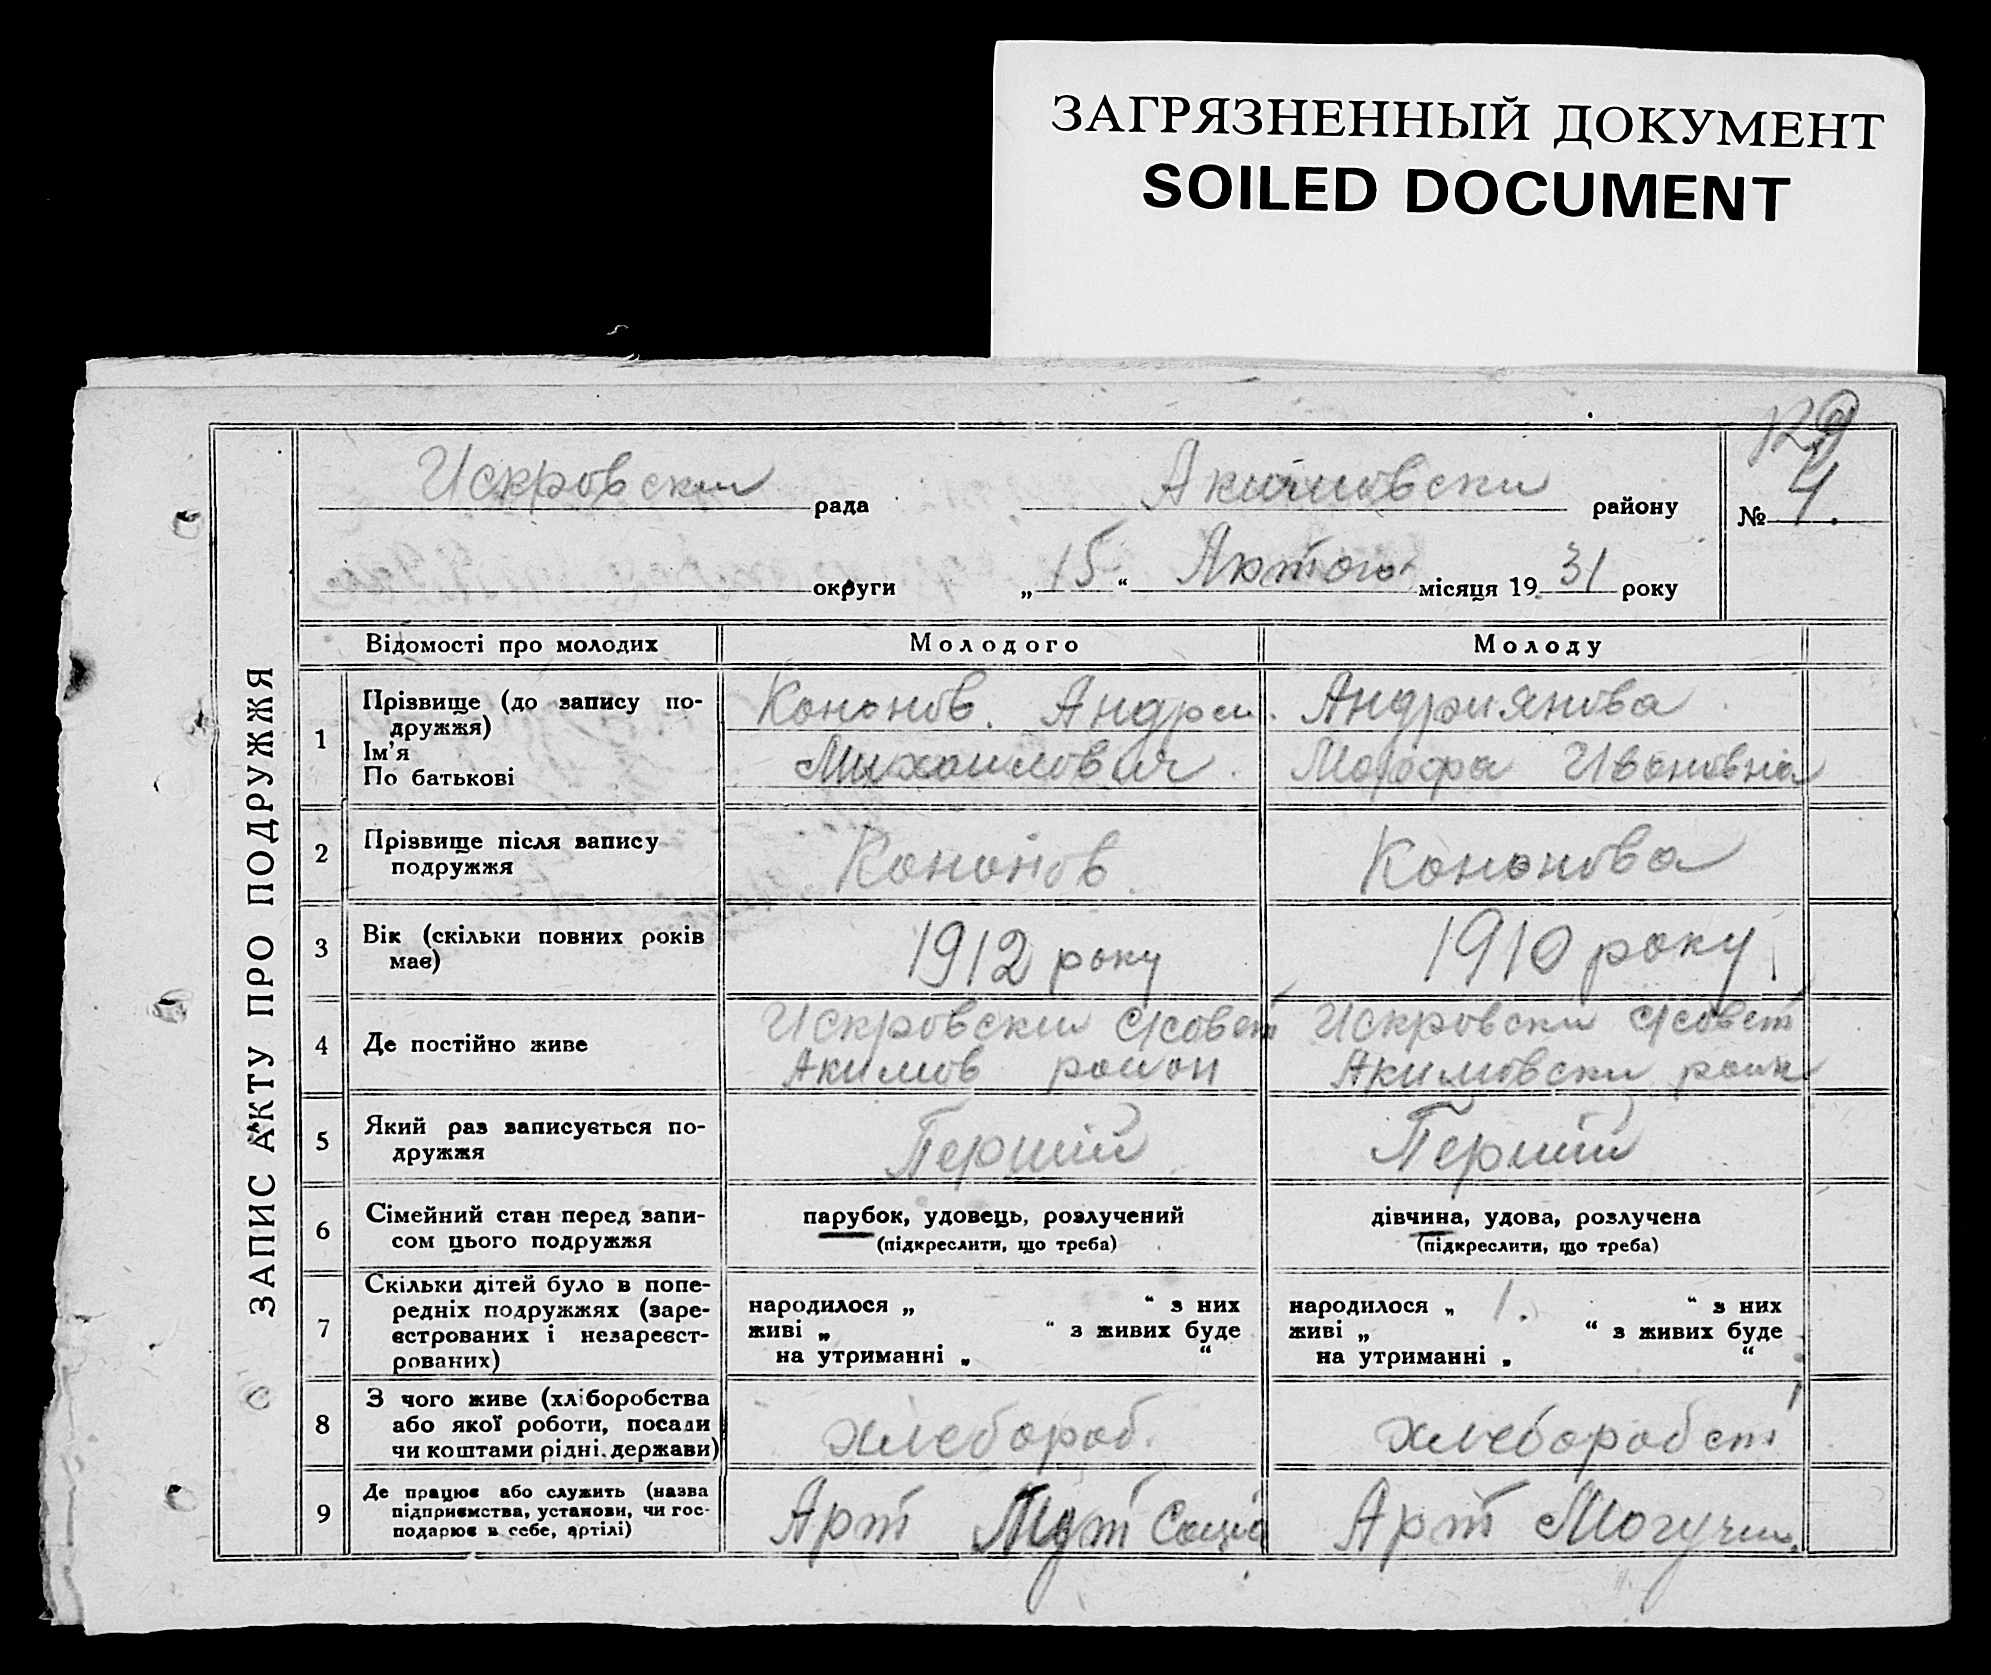 ЗАГРЯЗНЕННЫЙ ДОКУМЕНТ
SOILED DOCUMENT
ЗАПИС АКТУ ПРО ПОДРУЖЖЯ
129
Искровски рада Акимовски району № 4.
округи „15“ Лютого місяця 1931 року
Відомості про молодих Молодого Молоду
1 Прізвище (до запису по-
дружжя)
Ім'я
По батькові
Кононов. Андреи.
Михаилович.
Андриянова
Ивоновна
2 Прізвище після запису
подружжя
Кононов.
Кононова
3 Вік (скільки повних років
має)
1912 року
1910 року
4 Де постійно живе
Искровски с/совет
Акимов район
Искровски с/совет
Акимовски раин
5 Який раз записується по-
дружжя
Перший
Перший
6 Сімейний стан перед запи-
сом цього подружжя
парубок, удовець, розлучений
(підкреслити, що треба)
дівчина, удова, розлучена
(підкреслити, що треба)
7 Скільки дітей було в попе-
редніх подружжях (заре-
єстрованих і незареєст-
рованих)
народилося „ “ з них
живі „ “ з живих буде
на утриманні „ “
народилося „ 1. “ з них
живі „ “ з живих буде
на утриманні „ “
8 З чого живе (хліборобства
або якої роботи, посади
чи коштами рідні, держави)
хлебороб.
хлеборобст
9 Де працює або служить (назва
підприємства, установи, чи гос-
подарює в себе, артілі)
Арт Пут Соціо
Арт Могучи.